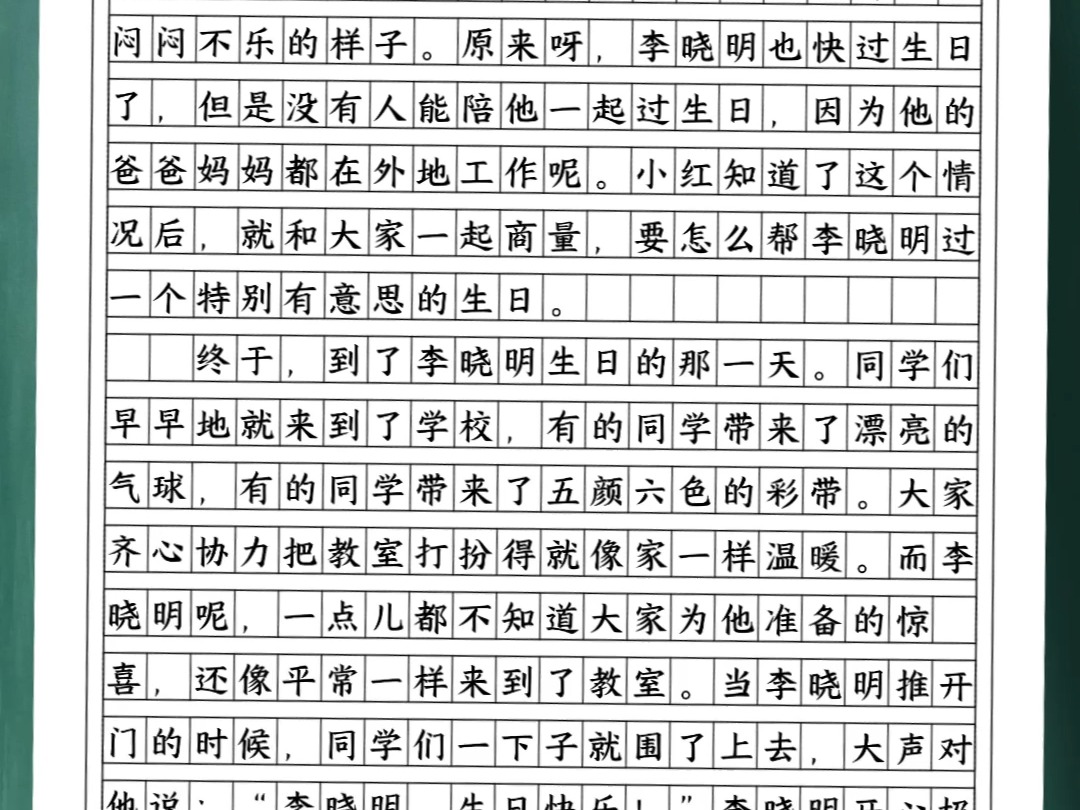 闷闷不乐的样子。原来呀，李晓明也快过生日
了，但是没有人能陪他一起过生日，因为他的
爸爸妈妈都在外地工作呢。小红知道了这个情
况后，就和大家一起商量，要怎么帮李晓明过
一个特别有意思的生日。
终于，到了李晓明生日的那一天。同学们
早早地就来到了学校，有的同学带来了漂亮的
气球，有的同学带来了五颜六色的彩带。大家
齐心协力把教室打扮得就像家一样温暖。而李
晓明呢，一点儿都不知道大家为他准备的惊
喜，还像平常一样来到了教室。当李晓明推开
门的时候，同学们一下子就围了上去，大声对
他说：“李晓明，生日快乐！”李晓明开心极